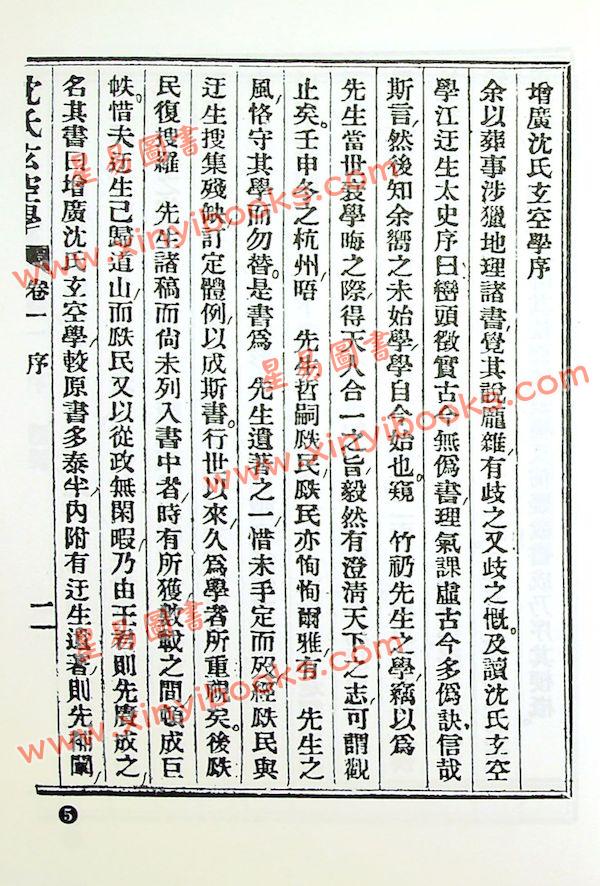 增廣沈氏玄空學序
余以葬事涉獵地理諸書覺其說龐雜有歧之又歧之慨及讀沈氏玄空
學江迂生太史序曰巒頭徵實古今無僞書理氣課虛古今多僞訣信哉
斯言然後知余嚮之未始學學自今始也窺 竹礽先生之學竊以爲
先生當世衰學晦之際得天人合一之旨毅然有澄清天下之志可謂觀
止矣壬申冬之杭州晤 先生哲嗣瓞民瓞民亦恂恂爾雅有 先生之
風恪守其學而勿替是書爲 先生遺著之一惜未手定而歿經瓞民與
迂生搜集殘缺訂定體例以成斯書行世以來久爲學者所重視矣後瓞
民復搜羅 先生諸稿而尙未列入書中者時有所獲數載之間頓成巨
帙惜夫迂生已歸道山而瓞民又以從政無閑暇乃由王君則先賡成之
名其書曰增廣沈氏玄空學較原書多泰半內附有迂生遺著則先闡
沈氏玄空學 卷一 序 二
5
星易圖書
www.xinyibooks.com
星易圖書
www.xinyibooks.com
星易圖書
www.xinyibooks.com
星易圖書
www.xinyibooks.com